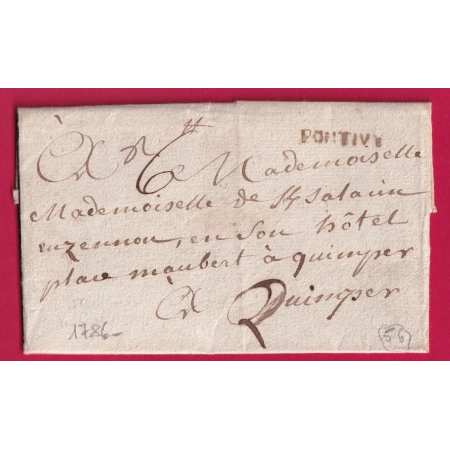 PONTIVY
À Mademoiselle
Mademoiselle de St salaün
en son hôtel
place maubert à quimper
À Quimper
1786-
56